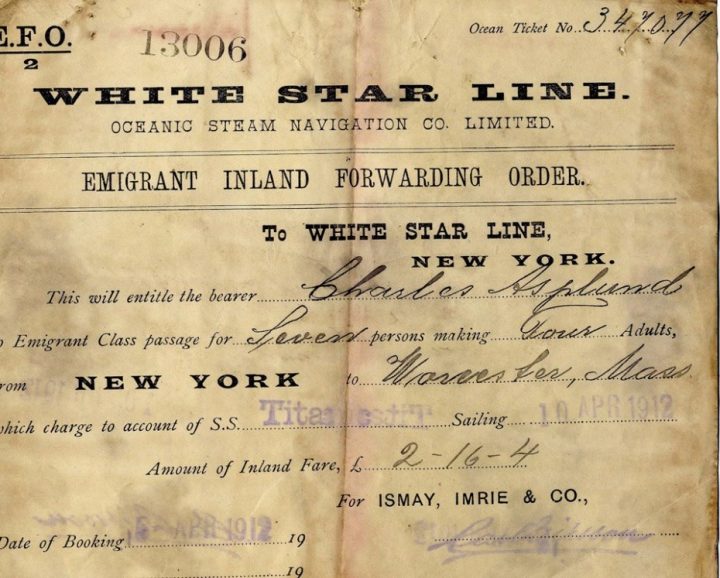 E.F.O.
2
13006
Ocean Ticket No. 347077
WHITE STAR LINE.
OCEANIC STEAM NAVIGATION CO. LIMITED.
EMIGRANT INLAND FORWARDING ORDER.
To WHITE STAR LINE,
NEW YORK.
This will entitle the bearer Charles Asplund
o Emigrant Class passage for Seven persons making Four Adults,
rom NEW YORK to Worcester, Mass
which charge to account of S.S. Titanic Sailing 10 APR 1912
Amount of Inland Fare, £ 2-16-4
For ISMAY, IMRIE & CO.,
Date of Booking 1912 19
19